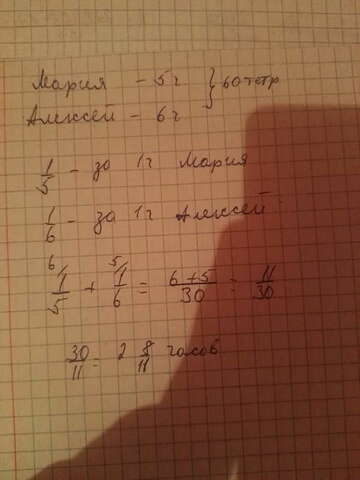 Мария - 5ч } 60 тетр
Алексей - 6ч
1/5 - за 1ч Мария
1/6 - за 1ч Алексей
6/ 1/5 + 5/ 1/6 = 6+5/30 = 11/30
30/11 = 2 8/11 часов